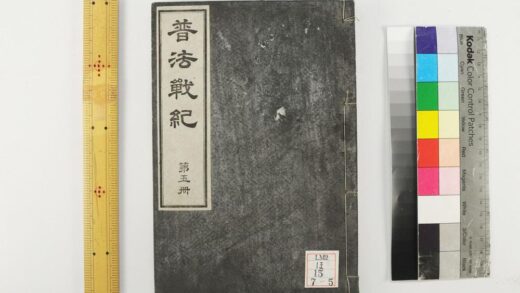 普法戰紀
第五冊
7-5
Kodak Color Control Patches
Blue
Cyan
Green
Yellow
Red
Magenta
White
3/Color
Black